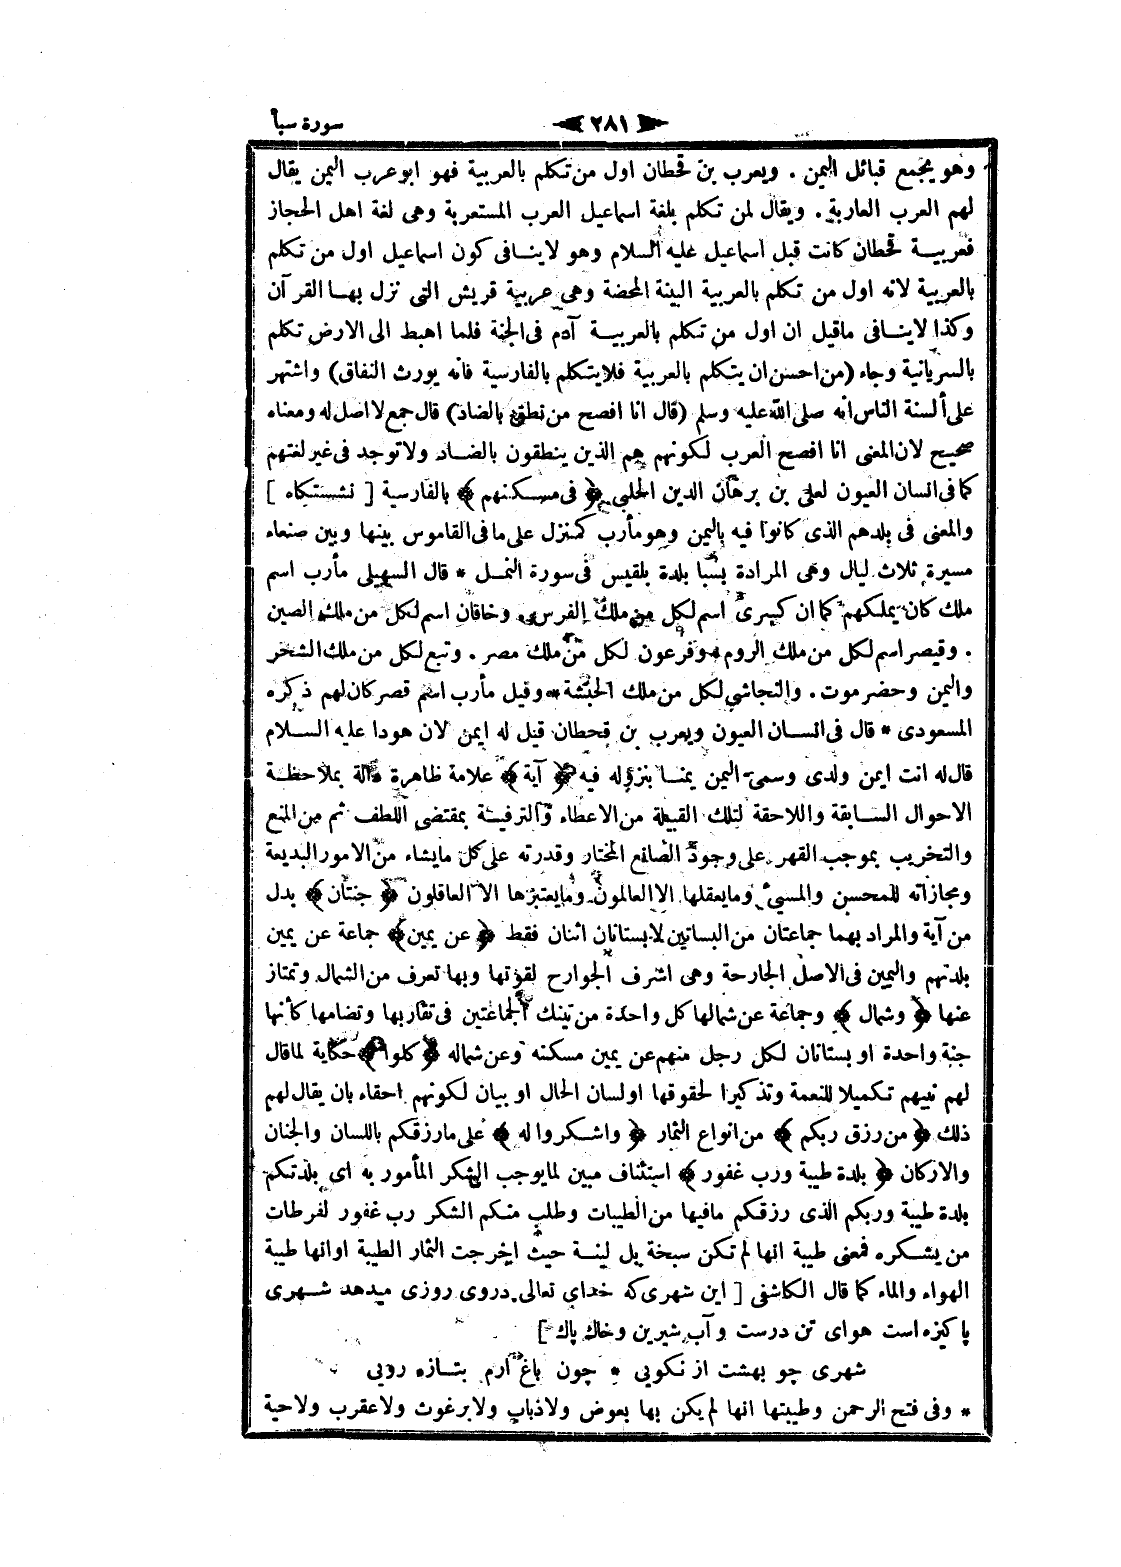 سورة سبأ
٢٨١
وهو مجمع قبائل اليمن . ويعرب بن قحطان اول من تكلم بالعربية فهو ابو عرب اليمن يقال
لهم العرب العاربة . ويقال لمن تكلم بلغة اسماعيل العرب المستعربة وهى لغة اهل الحجاز
فعربية قحطان كانت قبل اسماعيل عليه السلام وهو لاينافى كون اسماعيل اول من تكلم
بالعربية لانه اول من تكلم بالعربية البينة المحضة وهى عربية قريش التى نزل بها القرآن
وكذا لاينافى ماقيل ان اول من تكلم بالعربية آدم فى الجنة فلما اهبط الى الارض تكلم
بالسريانية وجاء (من احسن ان يتكلم بالعربية فلايتكلم بالفارسية فانه يورث النفاق) واشتهر
على ألسنة الناس انه صلى الله عليه وسلم (قال انا افصح من نطق بالضاد) قال جمع لا اصل له ومعناه
صحيح لان المعنى انا افصح العرب لكونهم هم الذين ينطقون بالضاد ولاتوجد فى غير لغتهم
كما فى انسان العيون لعلى بن برهان الدين الحلبى ﴿ فى مسكنهم ﴾ بالفارسية [ نشستكاه ]
والمعنى فى بلدهم الذى كانوا فيه باليمن وهو مأرب كمنزل على ما فى القاموس بينها وبين صنعاء
مسيرة ثلاث ليال وهى المرادة بسبا بلدة بلقيس فى سورة النمل * قال السهيلى مأرب اسم
ملك كان يملكهم كما ان كسرى اسم لكل من ملك الفرس . وخاقان اسم لكل من ملك الصين
. وقيصر اسم لكل من ملك الروم . وفرعون لكل من ملك مصر . وتبع لكل من ملك الشحر
واليمن وحضرموت . والنجاشي لكل من ملك الحبشة * وقيل مأرب اسم قصر كان لهم ذكره
المسعودى * قال فى انسان العيون ويعرب بن قحطان قيل له ايمن لان هودا عليه السلام
قال له انت ايمن ولدى وسمى اليمن يمنا بنزوله فيه ﴿ آية ﴾ علامة ظاهرة دالة بملاحظة
الاحوال السابقة واللاحقة لتلك القبيلة من الاعطاء والترفيه بمقتضى اللطف ثم من المنع
والتخريب بموجب القهر على وجود الصانع المختار وقدرته على كل مايشاء من الامور البديعة
ومجازاته للمحسن والمسيئ ومايعقلها الا العالمون ومايعتبرها الا العاقلون ﴿ جنتان ﴾ بدل
من آية والمراد بهما جماعتان من البساتين لابستانان اثنان فقط ﴿ عن يمين ﴾ جماعة عن يمين
بلدتهم واليمين فى الاصل الجارحة وهى اشرف الجوارح لقوتها وبها تعرف من الشمال وتمتاز
عنها ﴿ وشمال ﴾ وجماعة عن شمالها كل واحدة من تينك الجماعتين فى تقاربها وتضامها كأنها
جنة واحدة او بستانان لكل رجل منهم عن يمين مسكنه وعن شماله ﴿ كلوا ﴾ حكاية لماقال
لهم نبيهم تكميلا للنعمة وتذكيرا لحقوقها او لسان الحال او بيان لكونهم احقاء بان يقال لهم
ذلك ﴿ من رزق ربكم ﴾ من انواع الثمار ﴿ واشكروا له ﴾ على مارزقكم باللسان والجنان
والاركان ﴿ بلدة طيبة ورب غفور ﴾ استئناف مبين لمايوجب الشكر المأمور به اى بلدتكم
بلدة طيبة وربكم الذى رزقكم مافيها من الطيبات وطلب منكم الشكر رب غفور لفرطات
من يشكره فمعنى طيبة انها لم تكن سبخة بل لينة حيث اخرجت الثمار الطيبة او انها طيبة
الهواء والماء كما قال الكاشفى [ اين شهرى كه خداي تعالى دروى روزى ميدهد شهرى
پاكيزه است هواى تن درست و آب شيرين وخاك پاك ]
شهرى چو بهشت از نكويى * چون باغ ارم بتازه رويى
* وفى فتح الرحمن وطيبتها انها لم يكن بها بعوض ولاذباب ولابرغوث ولاعقرب ولاحية